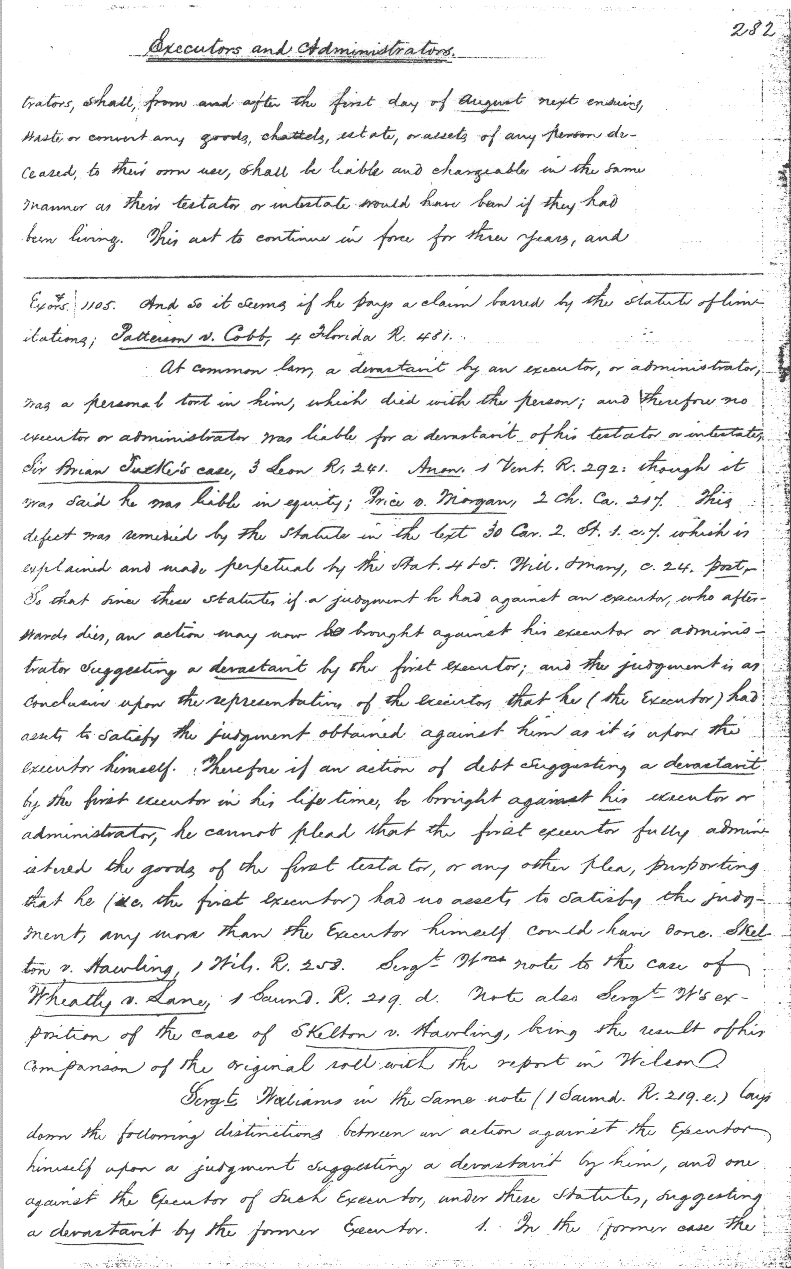 282
Executors and Administrators.
trators, shall, from and after the first day of August next ensuing,
waste or convert any goods, chattels, estate, or assets of any person de-
ceased, to their own use, shall be liable and chargeable in the same
manner as their testator or intestate would have been if they had
been living. This act to continue in force for three years, and
Exors. 1105. And so it seems if he pays a claim barred by the statute of lim-
itations; Patterson v. Cobb, 4 Florida R. 481.
At common law, a devastavit by an executor, or administrator,
was a personal tort in him, which died with the person; and therefore no
executor or administrator was liable for a devastavit of his testator or intestate,
Sir Brian Tucke's case, 3 Leon R. 241. Anon. 1 Vent. R. 292: though it
was said he was liable in equity; Price v. Morgan, 2 Ch. Ca. 217. This
defect was remedied by the statute in the text 30 Car. 2. St. 1. c. 7. which is
explained and made perpetual by the stat. 4 & 5. Will. & Mary, c. 24. post,-
So that since these statutes if a judgment be had against an executor, who after-
wards dies, an action may now be brought against his executor or adminis-
trator suggesting a devastavit by the first executor; and the judgment is as
conclusive upon the representatives of the executor, that he (the Executor) had
assets to satisfy the judgment obtained against him as it is upon the
executor himself. Therefore if an action of debt suggesting a devastavit
by the first executor in his life time, be brought against his executor or
administrator, he cannot plead that the first executor fully admin-
istered the goods of the first testator, or any other plea, purporting
that he (sc. the first executor) had no assets to satisfy the judg-
ment, any more than the Executor himself could have done. Skel-
ton v. Hawling, 1 Wils. R. 258. Sergt. Wms note to the case of
Wheatly v. Lane, 1 Saund. R. 219. d. Note also Sergt. W's ex-
position of the case of Skelton v. Hawling, being the result of his
comparison of the original roll with the report in Wilson.
Sergt. Williams in the same note (1 Saund. R. 219. e.) lays
down the following distinctions between an action against the Executor
himself upon a judgment suggesting a devastavit by him, and one
against the Executor of such Executor, under these statutes, suggesting
a devastavit by the former Executor. 1. In the former case the